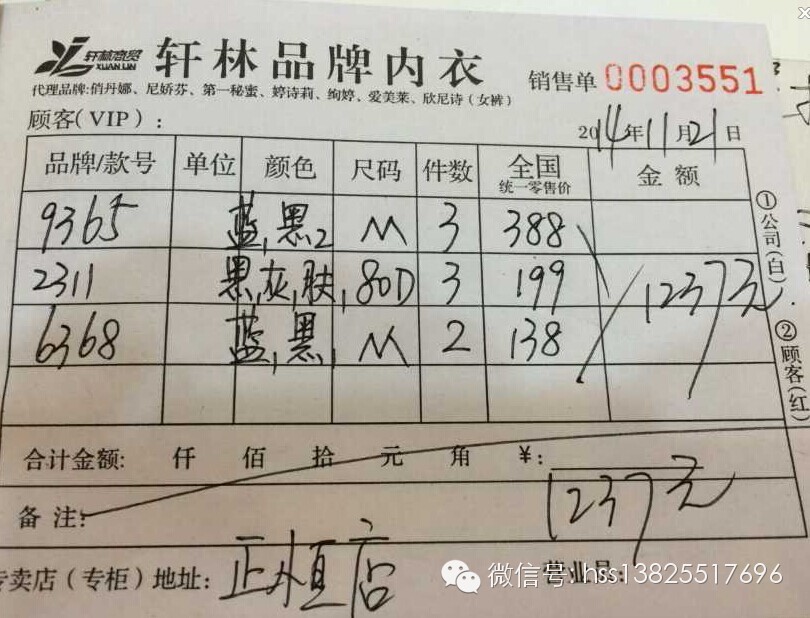 轩林商贸 XUAN LIN 轩林品牌内衣 销售单 0003551
代理品牌:俏丹娜、尼娇芬、第一秘蜜、婷诗莉、绚婷、爱美莱、欣尼诗(女裤)
顾客(VIP): 2014年11月21日
品牌/款号 单位 颜色 尺码 件数 全国统一零售价 金额
9365 蓝,黑2 M 3 388
2311 黑,灰,肤, 80D 3 199 1237元
6368 蓝,黑, M 2 138
①公司(白)
②顾客(红)
合计金额: 仟 佰 拾 元 角 ¥:
备注: 1237元
专卖店(专柜)地址: 正恒店 营业员:
微信号:hss13825517696